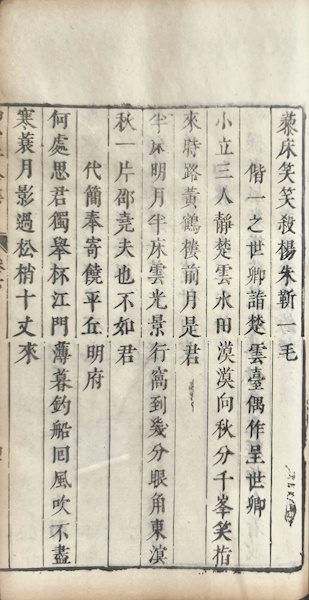 藜床笑笑殺楊朱靳一毛
偕一之世卿諸楚雲臺偶作呈世卿
小立三人靜楚雲水田漠漠向秋分千峯笑指
來時路黃鶴樓前月是君
半床明月半床雲光景行窩到幾分眼角東溟
秋一片邵堯夫也不如君
代簡奉寄饒平丘明府
何處思君獨舉杯江門薄暮釣船回風吹不盡
寒蓑月影過松梢十丈來